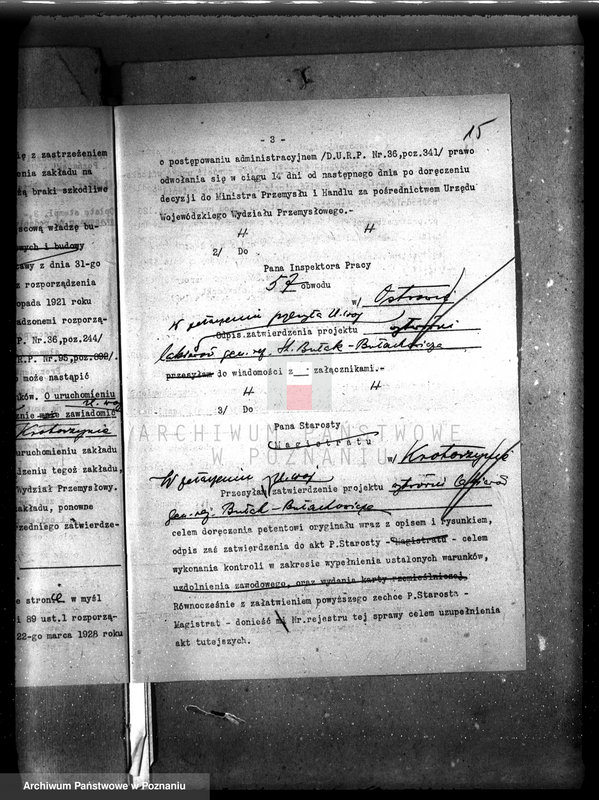 ię z zastrzeżeniem
enia zakładu na
żą braki szkodliwe
scową władzę bu-
wych i budowy
awy z dnia 31-go
z rozporządzenia
opada 1921 roku
adzonemi rozporzą-
P. Nr.36,poz.244/
R.P. Nr.95,poz.
o może nastąpić
ków. O uruchomieniu
zawiadomić
Krotoszynie
uruchomieniu zakładu
dzeniu tegoż zakładu,
Wydział Przemysłowy.
zakładu, ponowne
rzedniego zatwierdze-
e stronie w myśl
i 89 ust.1 rozporzą-
22-go marca 1928 roku
- 3 -
15
o postępowaniu administracyjnem /D.U.R.P. Nr.36,poz.341/ prawo
odwołania się w ciągu 14 dni od następnego dnia po doręczeniu
decyzji do Ministra Przemysłu i Handlu za pośrednictwem Urzędu
Wojewódzkiego Wydziału Przemysłowego.-
2/ Do
Pana Inspektora Pracy
57 obwodu
w/ Ostrowie
W załączeniu
Odpis zatwierdzenia projektu wytwórni
gen. St. Bułak-Bałachowicza
przesyłam do wiadomości z . załącznikami.-
3/ Do
Pana Starosty
Magistratu
w/ Krotoszynie
W załączeniu
Przesyłam zatwierdzenie projektu wytwórni
gen. Bułak-Bałachowicza
celem doręczenia petentowi oryginału wraz z opisem i rysunkiem,
odpis zaś zatwierdzenia do akt P.Starosty - Magistratu - celem
wykonania kontroli w zakresie wypełnienia ustalonych warunków,
uzdolnienia zawodowego, oraz wydania karty rzemieślniczej.
Równocześnie z załatwieniem powyższego zechce P.Starosta -
Magistrat - donieść mi Nr.rejestru tej sprawy celem uzupełnienia
akt tutejszych.
ARCHIWUM PAŃSTWOWE
W POZNANIU
Archiwum Państwowe w Poznaniu